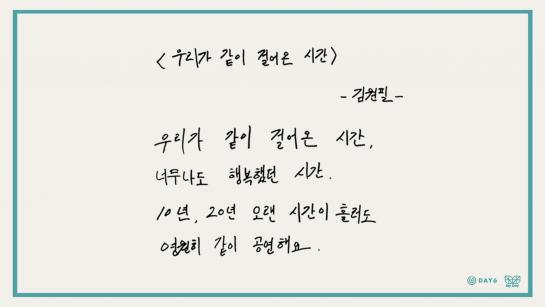 <우리가 같이 걸어온 시간>
- 김원필 -
우리가 같이 걸어온 시간,
너무나도 행복했던 시간.
10년, 20년 오랜 시간이 흘러도
영원히 같이 공연해요.
DAY6